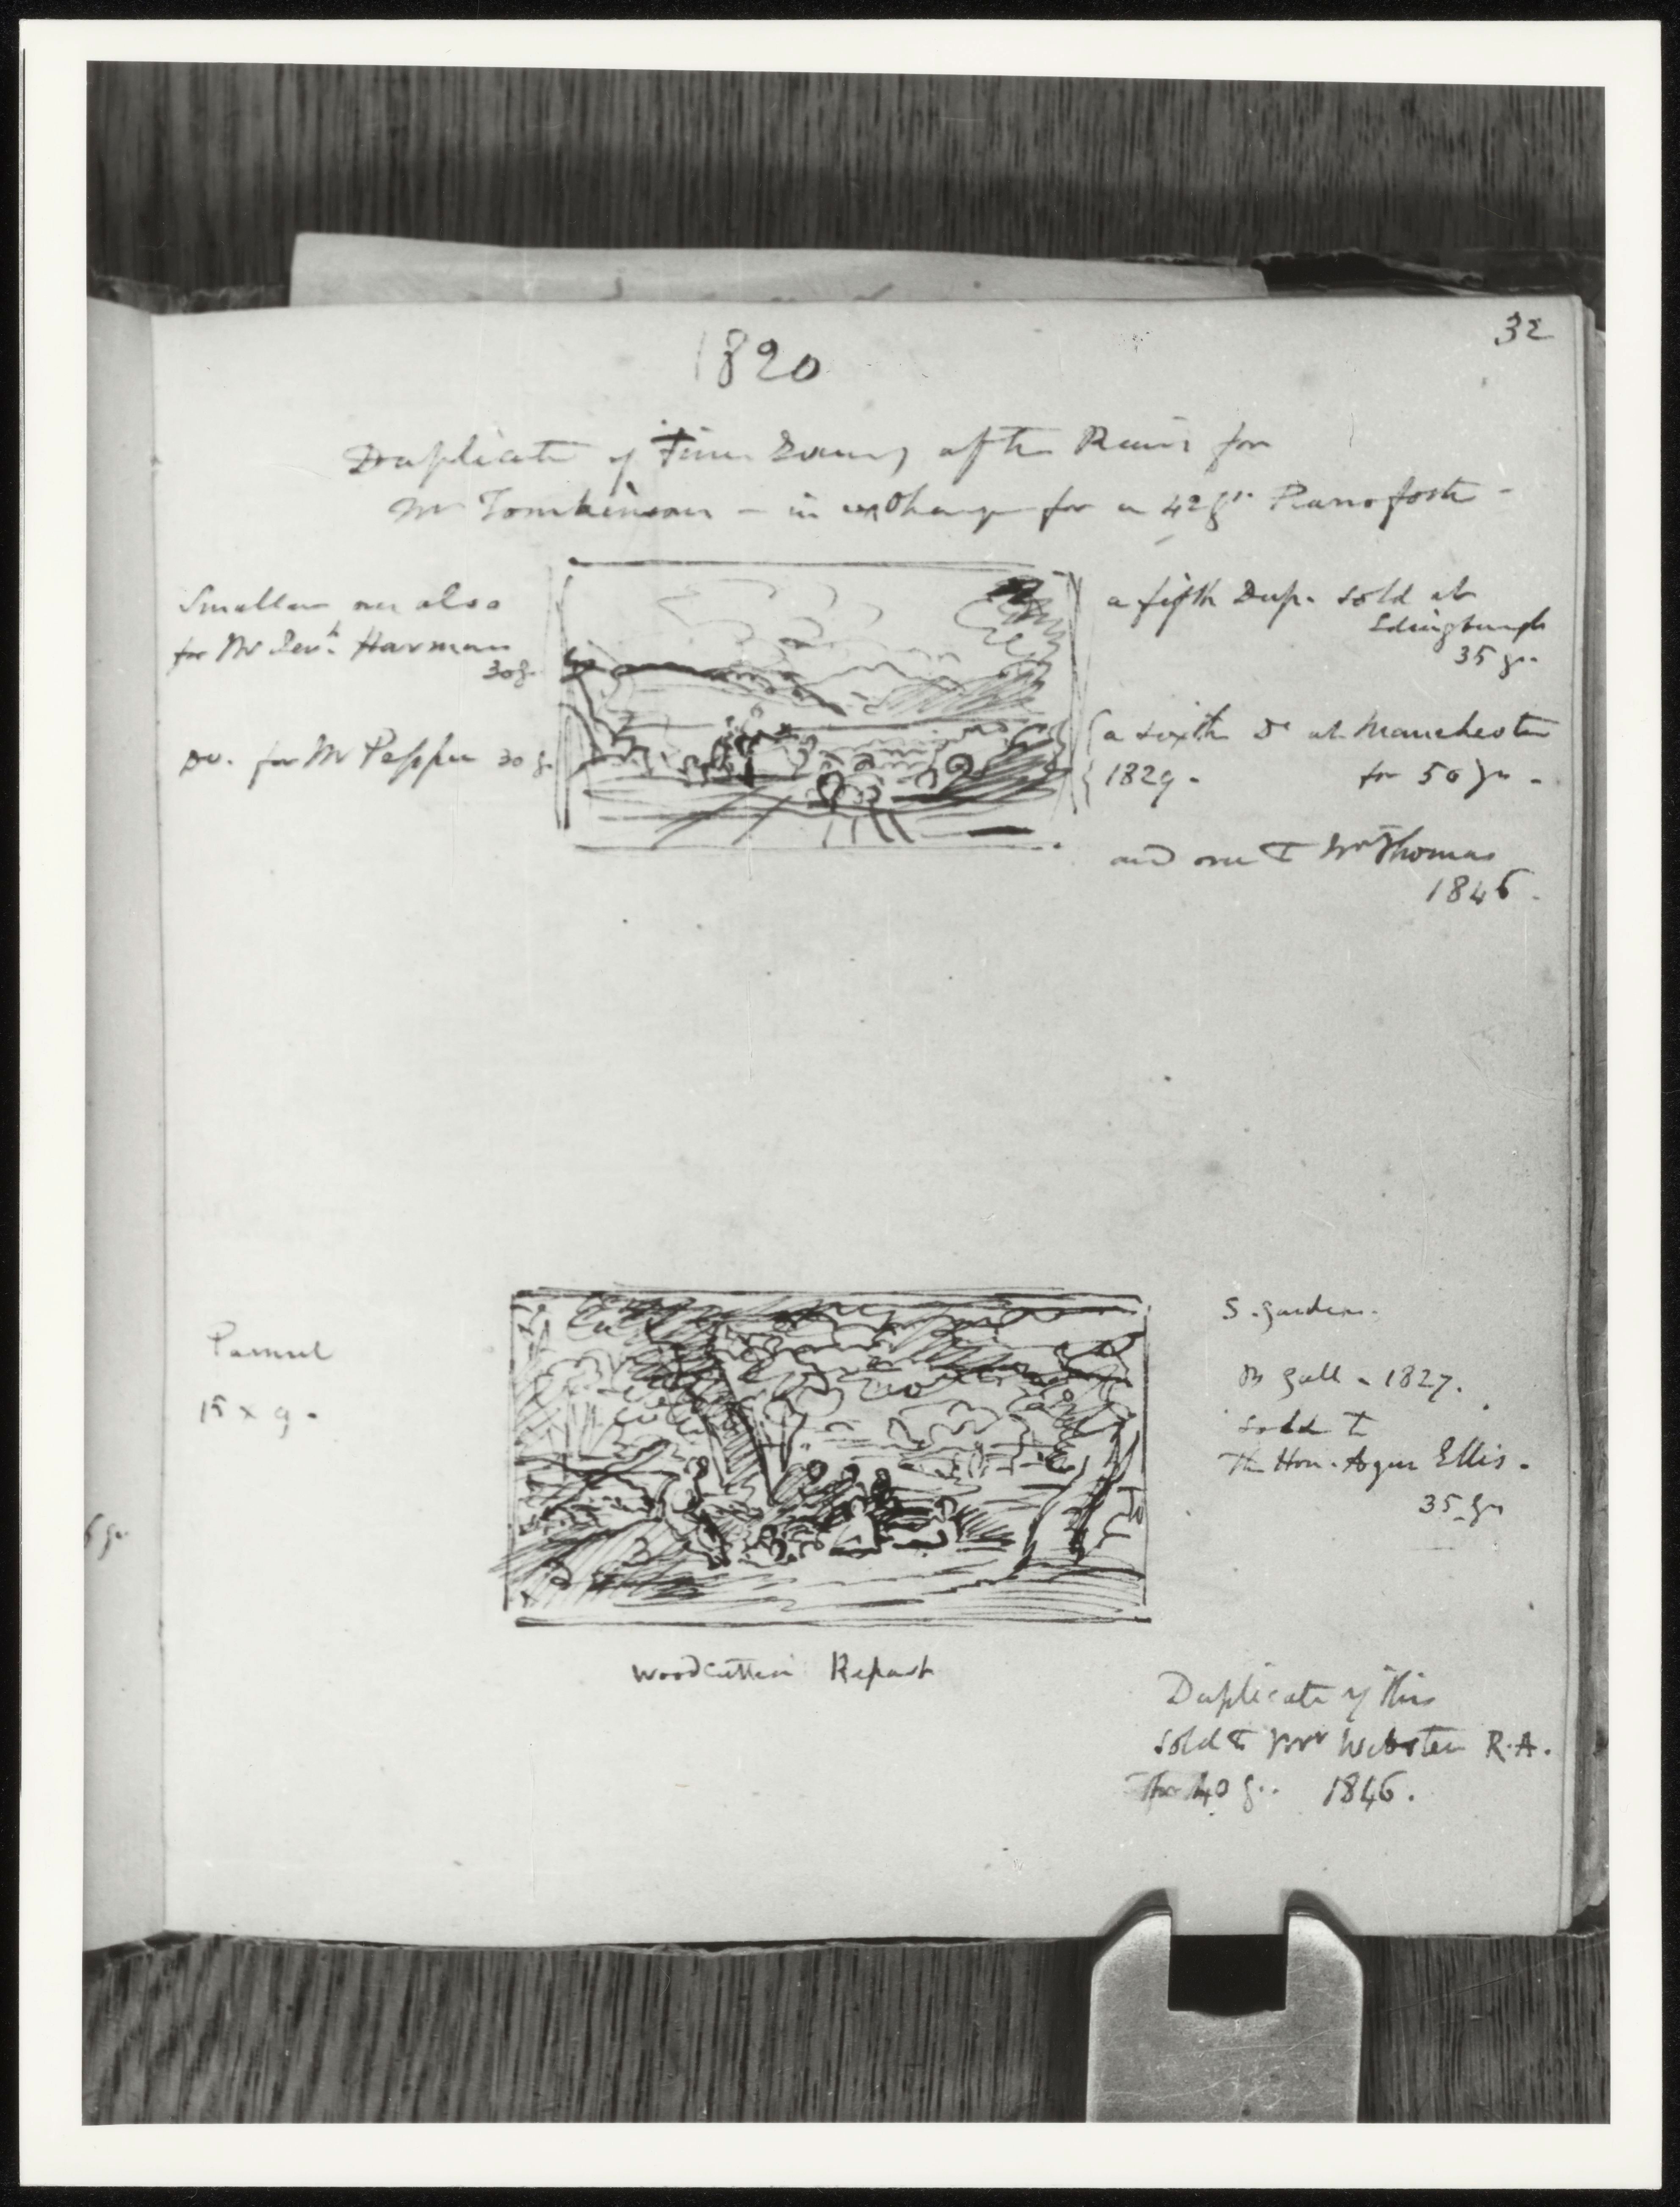 32
1820
Duplicate of Fine Evening after Rain for
Mr Tomkinson – in exchange for a 42 gs. Pianoforte –
Smaller one also
for Mr Jerh. Harman
30 g.
Do. for Mr Pepper 30 g.
a fifth Dup. sold at
Edingburgh
35 gs.
a sixth Do at Manchester
1829. for 50 gs –
and one to Mr Thomas
1846.
Pannel
15 x 9.
S. gardens.
B Gall – 1827.
sold to
The Hon. Agar Ellis.
35 gs
5 gs.
Woodcutters Repast
Duplicate of this
sold to Mr Webster R.A.
for 40 g.. 1846.